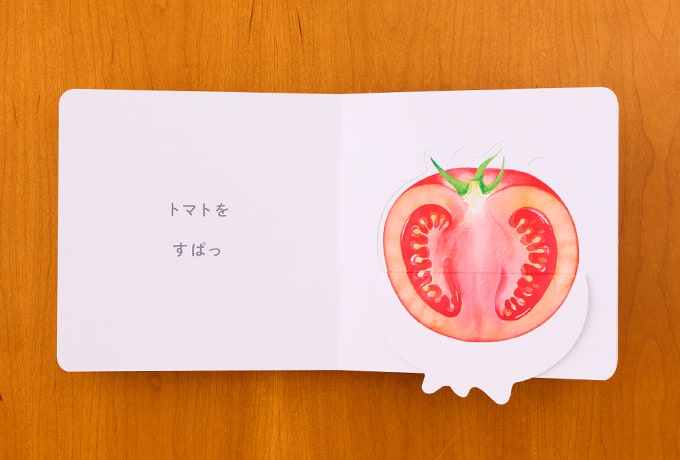 トマトを
すぱっ